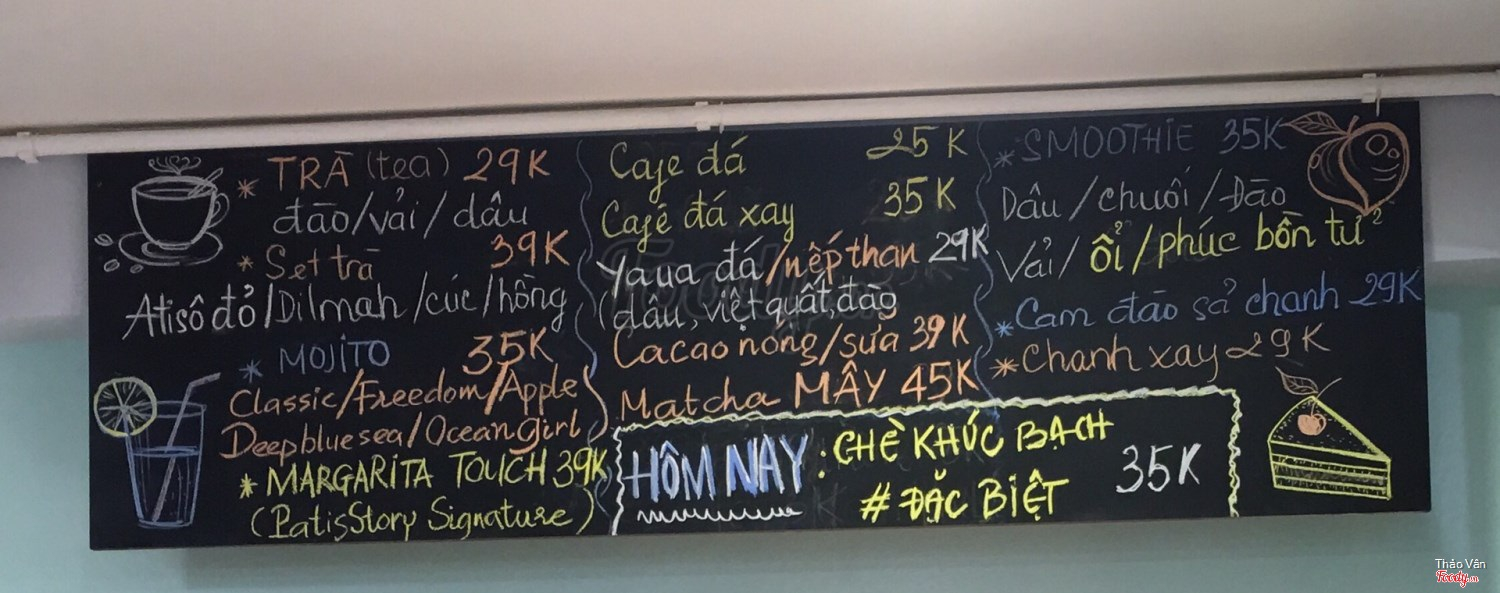 * TRÀ (tea) 29K
đào/vải/dâu
* Set trà 39K
Atisô đỏ/Dilmah/cúc/hồng
* MOJITO 35K
Classic/Freedom/Apple
Deepbluesea/OceanGirl
* MARGARITA TOUCH 39K
(PatisStory Signature)
Cafe đá 25K
Café đá xay 35K
Yaua đá/nếp than 29K
(dâu, việt quất, đào)
Cacao nóng/sữa 39K
Matcha MÂY 45K
* SMOOTHIE 35K
Dâu/chuối/Đào
Vải/ổi/phúc bồn tử
* Cam đào sả chanh 29K
* Chanh xay 29K
HÔM NAY: CHÈ KHÚC BẠCH
# ĐẶC BIỆT 35K
Thảo Vân
Foody.vn